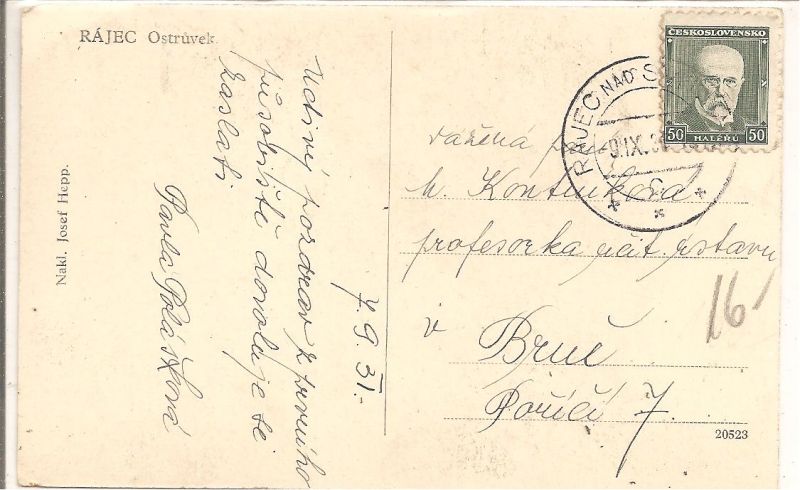 RÁJEC Ostrůvek.
Nakl. Josef Hepp.
7. 9. 31.
Uctivý pozdrav z prvního
působiště dovoluje si
zaslati
Pavla Polášková
ČESKOSLOVENSKO
50 HALÉŘŮ 50
RÁJEC NAD S
9.IX.3
Vážená
profesorka učit. ústavu
v Brně
Poříčí 7.
16
20523